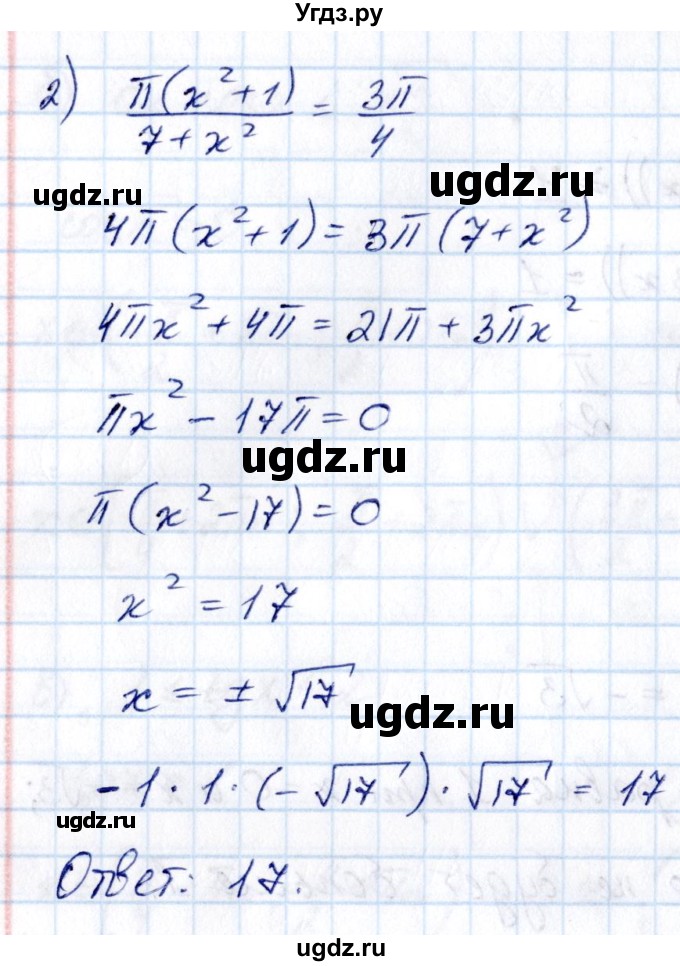 Угдз.ру
2) π(x²+1)/(7+x²) = 3π/4
ugdz.ru ugdz.ru
4π(x²+1) = 3π(7+x²)
4πx² + 4π = 21π + 3πx²
πx² - 17π = 0
ugdz.ru
π(x²-17) = 0
x² = 17
x = ± √17
ugdz.ru
-1 · 1 · (-√17) · √17 = 17
ugdz.ru
Ответ: 17.
ugdz.ru